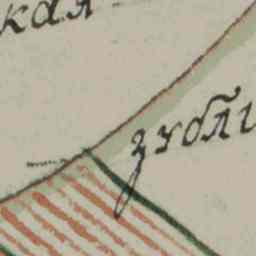 кая
зубли